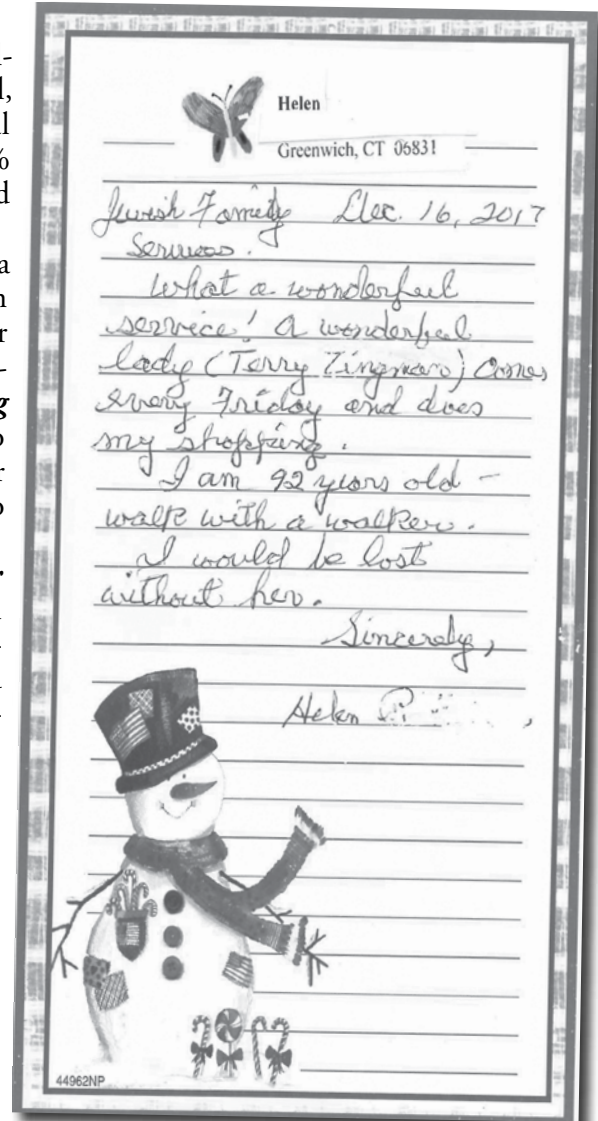 Helen
Greenwich, CT 06831
Jewish Family Dec. 16, 2017
Services.
What a wonderful
service! A wonderful
lady (Terry Zingman) comes
every Friday and does
my shopping.
I am 92 years old -
walk with a walker.
I would be lost
without her.
Sincerely,
Helen
44962NP